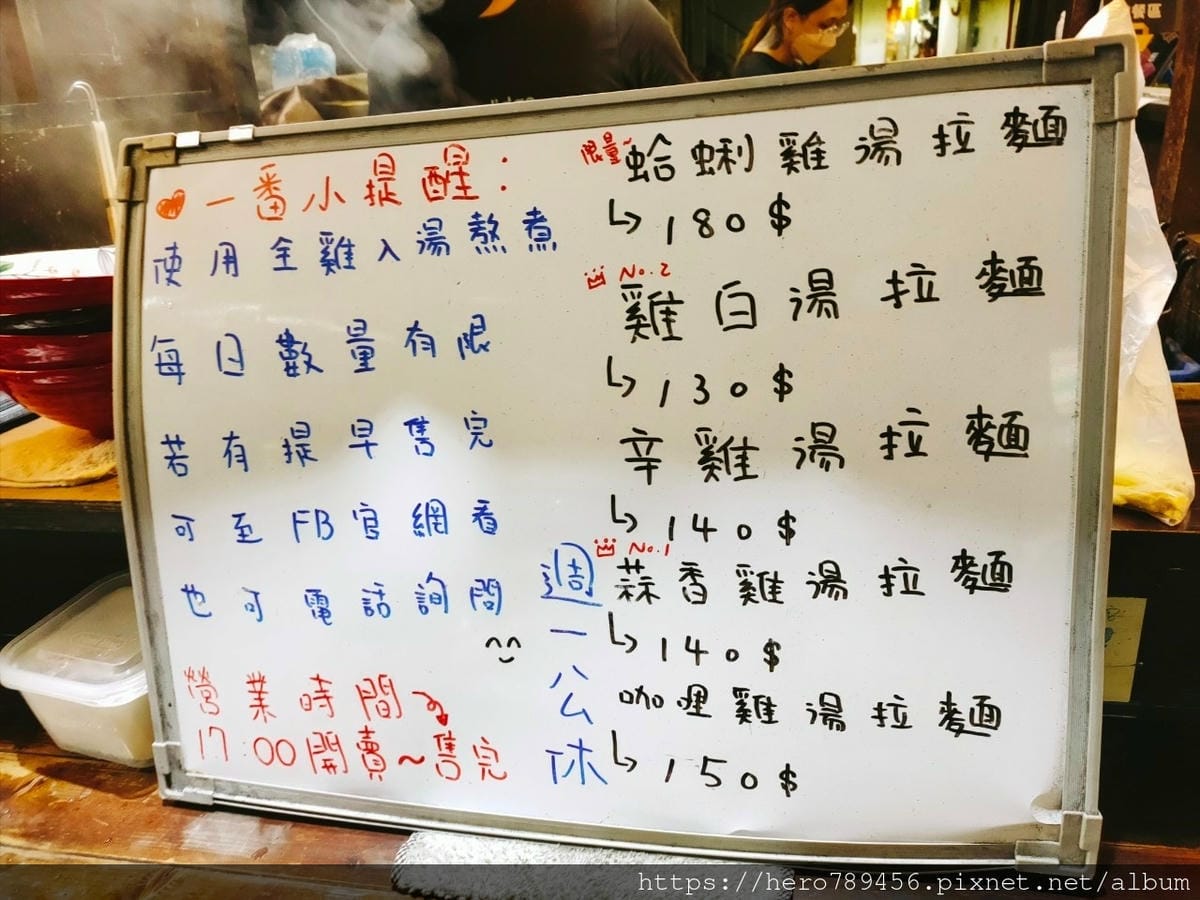 一番小提醒：
使用全雞入湯熬煮
每日數量有限
若有提早售完
可至FB官網看
也可電話詢問
營業時間
17:00開賣~售完
週一公休
限量~
蛤蜊雞湯拉麵
180$
No.2
雞白湯拉麵
130$
辛雞湯拉麵
140$
No.1
蒜香雞湯拉麵
140$
咖哩雞湯拉麵
150$
https://hero789456.pixnet.net/album